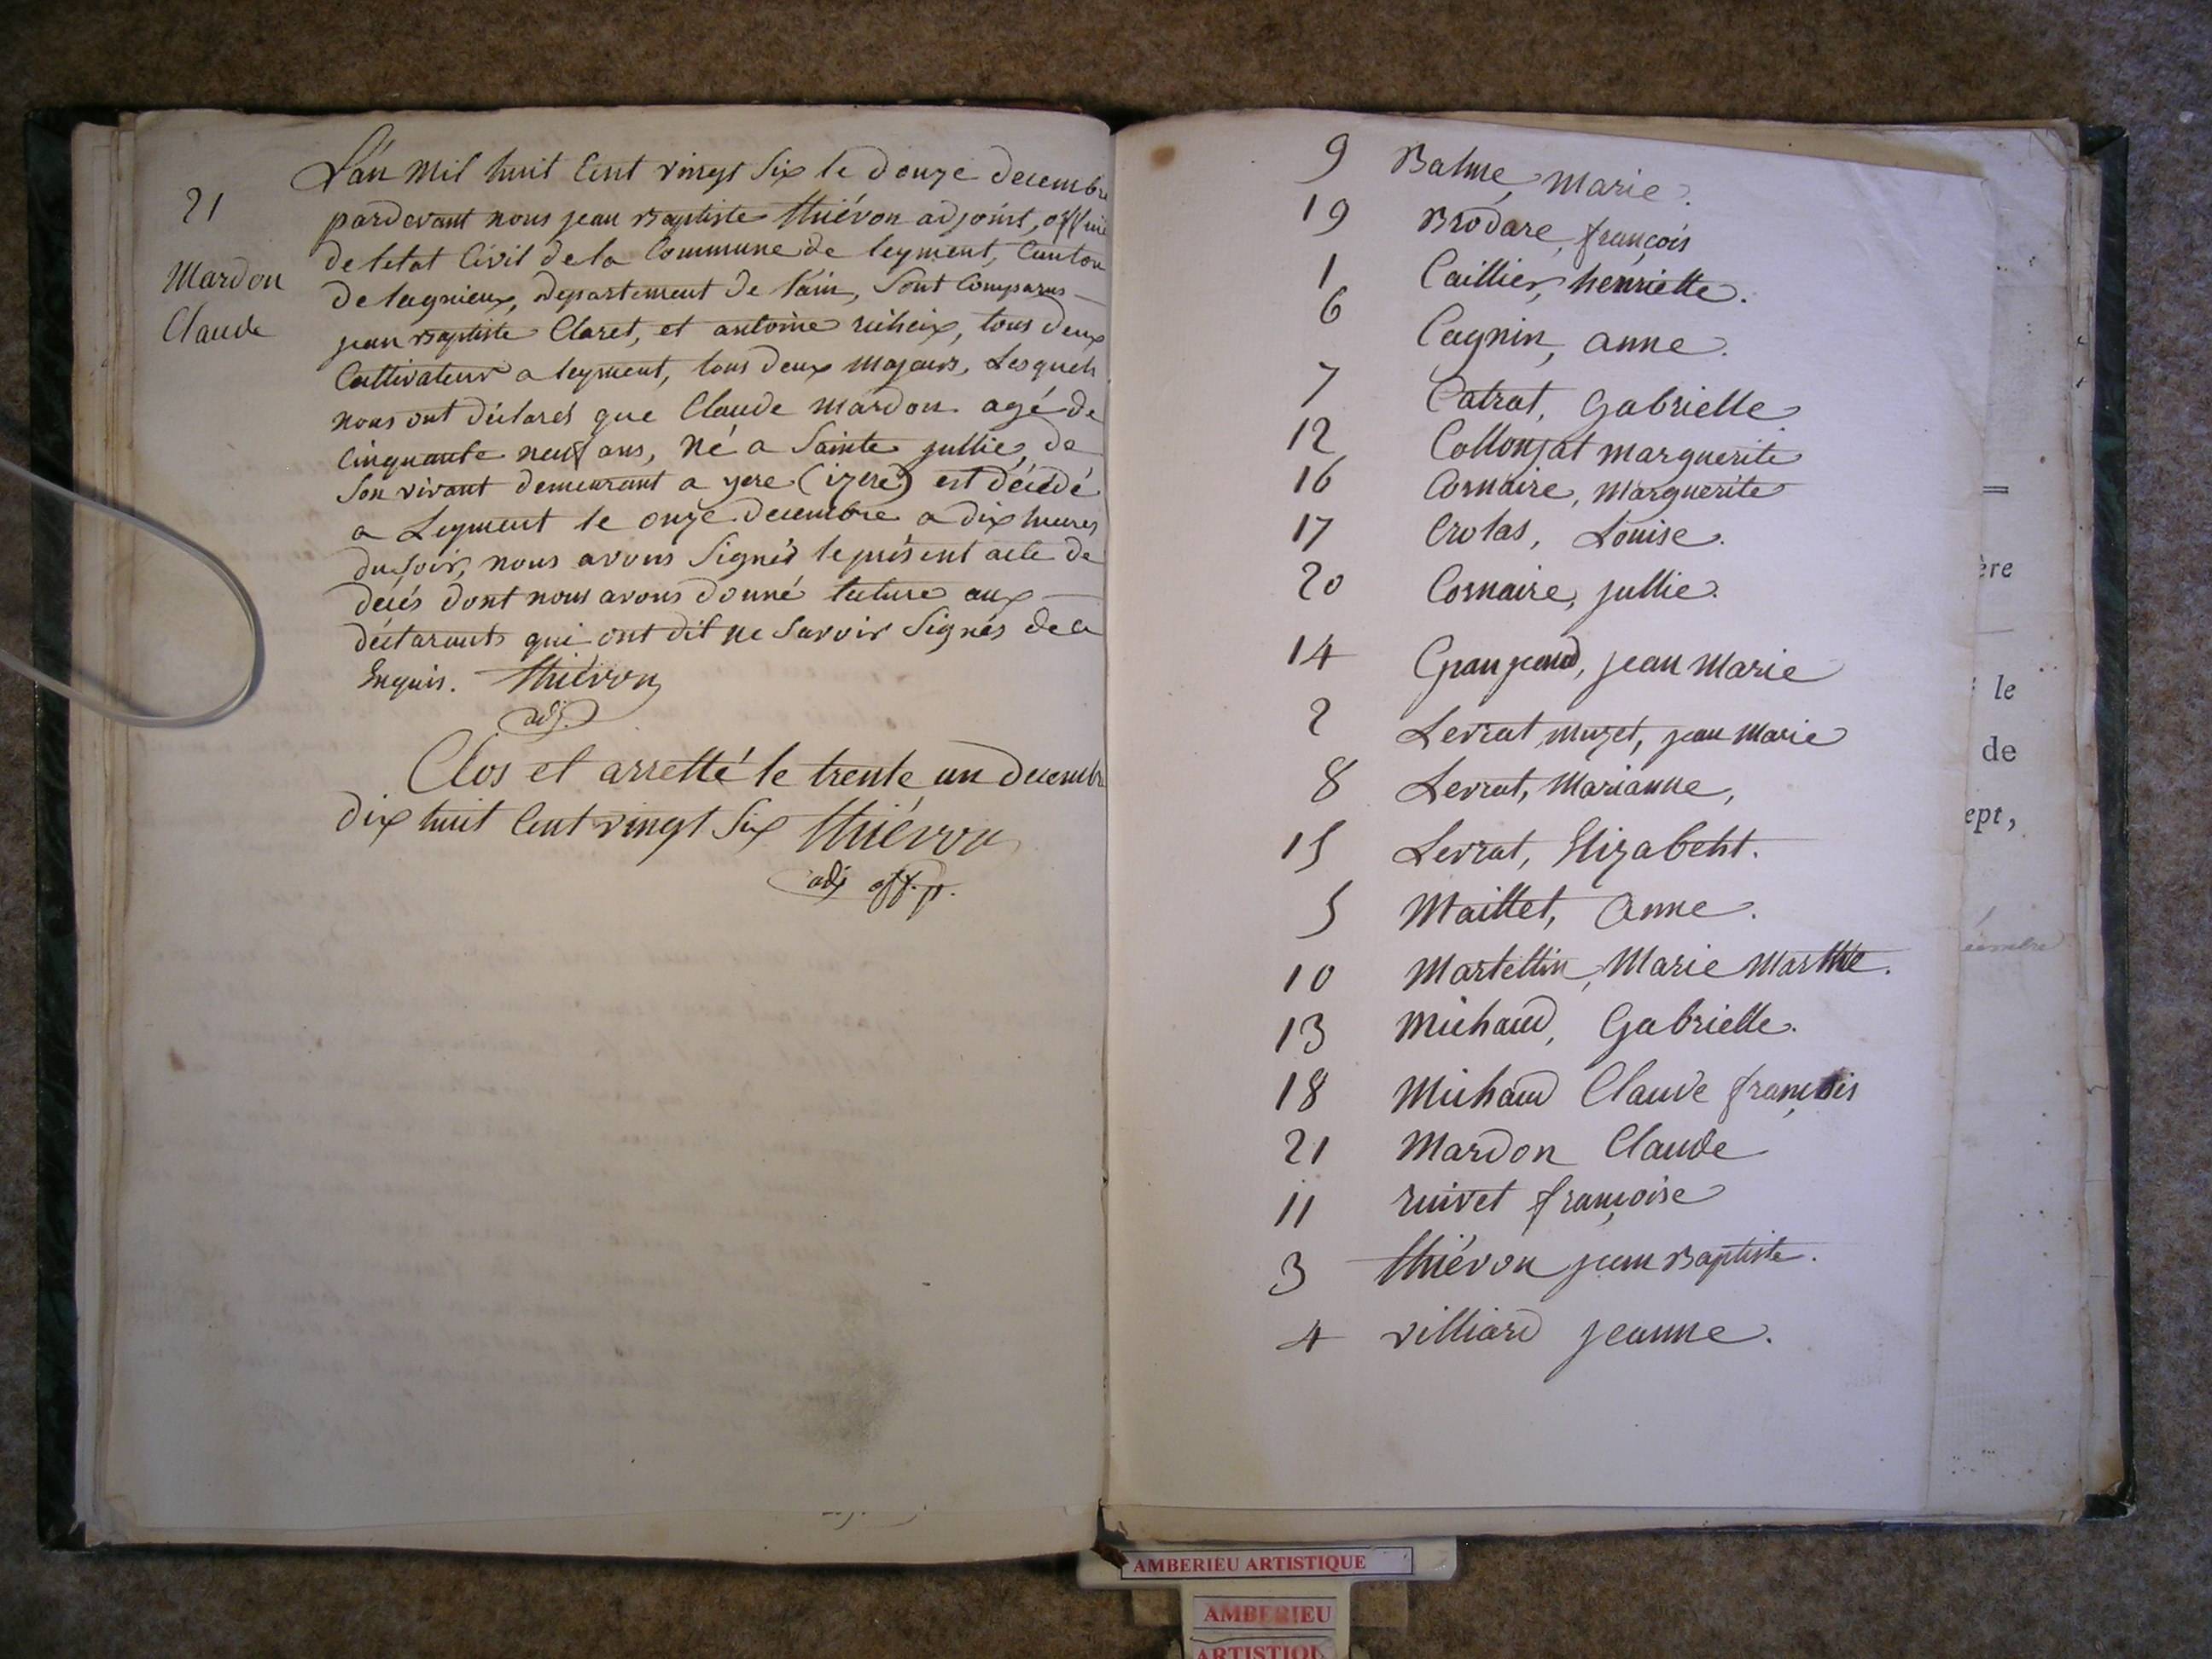 21
Mardon
Claude
L'an mil huit Cent vingt Six le douze decembre
pardevant nous jean Baptiste thiévon adjoint, officié
de letat Civil de la Commune de leyment, Canton
de lagnieux, departement de l'ain, Sont Comparus
jean Baptiste Claret, et antoine
tous deux
Cultivateur a leyment, tous deux majeurs, Lesquels
nous ont déclarés que Claude Mardon agé de
Cinquante neuf ans, né a Sainte jullie, de
Son vivant demeurant a yere (izere) est décédé
a Leyment le onze decembre a dix heures
du soir, nous avons Signés le présent acte de
décés dont nous avons donné lecture aux
déclarants qui ont dit ne Savoir Signés de ce
Enquis. thiévon
adj.
Clos et arretté le trente un decembre
dix huit Cent vingt Six thiévon
adj off. p.
9 Balme, Marie.
19 Brodare, françois
1 Caillier, henriette.
6 Cagnin, anne.
7 Catrat, Gabrielle
12 Collonjat marguerite
16 Cosnaire, Marguerite
17 Crolas, Louise.
20 Cosnaire, jullie.
14 Granjeand, jean Marie
2 Levrat muzet, jean Marie
8 Levrat, Marianne,
15 Levrat, Elizabeht.
5 Maillet, Anne.
10 Martellin, Marie Marthe.
13 Michaud, Gabrielle.
18 Michaud Claude françois
21 Mardon Claude
11 ruivet françoise
3 thiévon jean Baptiste.
4 villiard jeanne.
ère
le
de
ept,
AMBERIEU ARTISTIQUE
AMBERIEU
ARTISTIQU